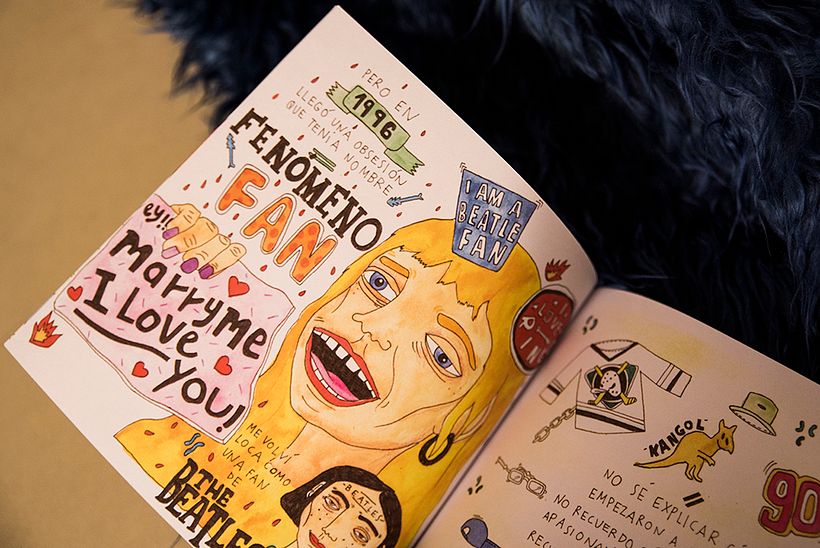 PERO EN
1996
LLEGÓ UNA OBSESIÓN
QUE TENÍA NOMBRE
FENÓMENO
FAN
I AM A
BEATLE
FAN
ey!!
Marry me
I LOVE
YOU!
I
LOVE
ME VOLVÍ
LOCA COMO
UNA FAN
DE
THE
BEATLES
BEATLES
KANGOL
90
NO SÉ EXPLICAR
EMPEZARON A
NO RECUERDO